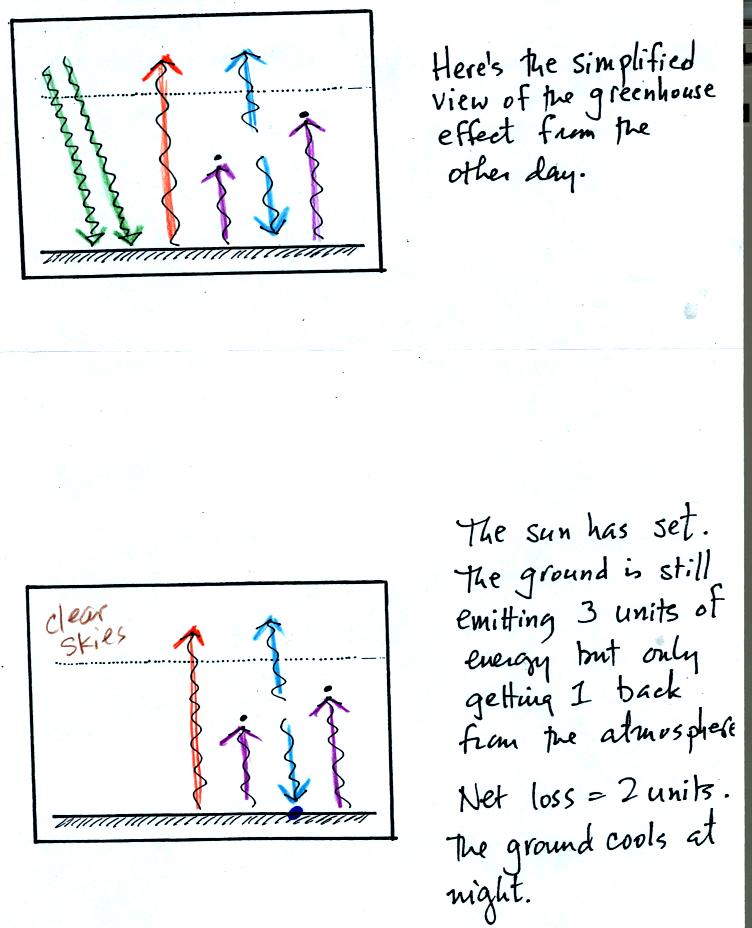 Here's the simplified
view of the greenhouse
effect from the
other day.
clear
skies
The sun has set.
The ground is still
emitting 3 units of
energy but only
getting 1 back
from the atmosphere
Net loss = 2 units.
The ground cools at
night.